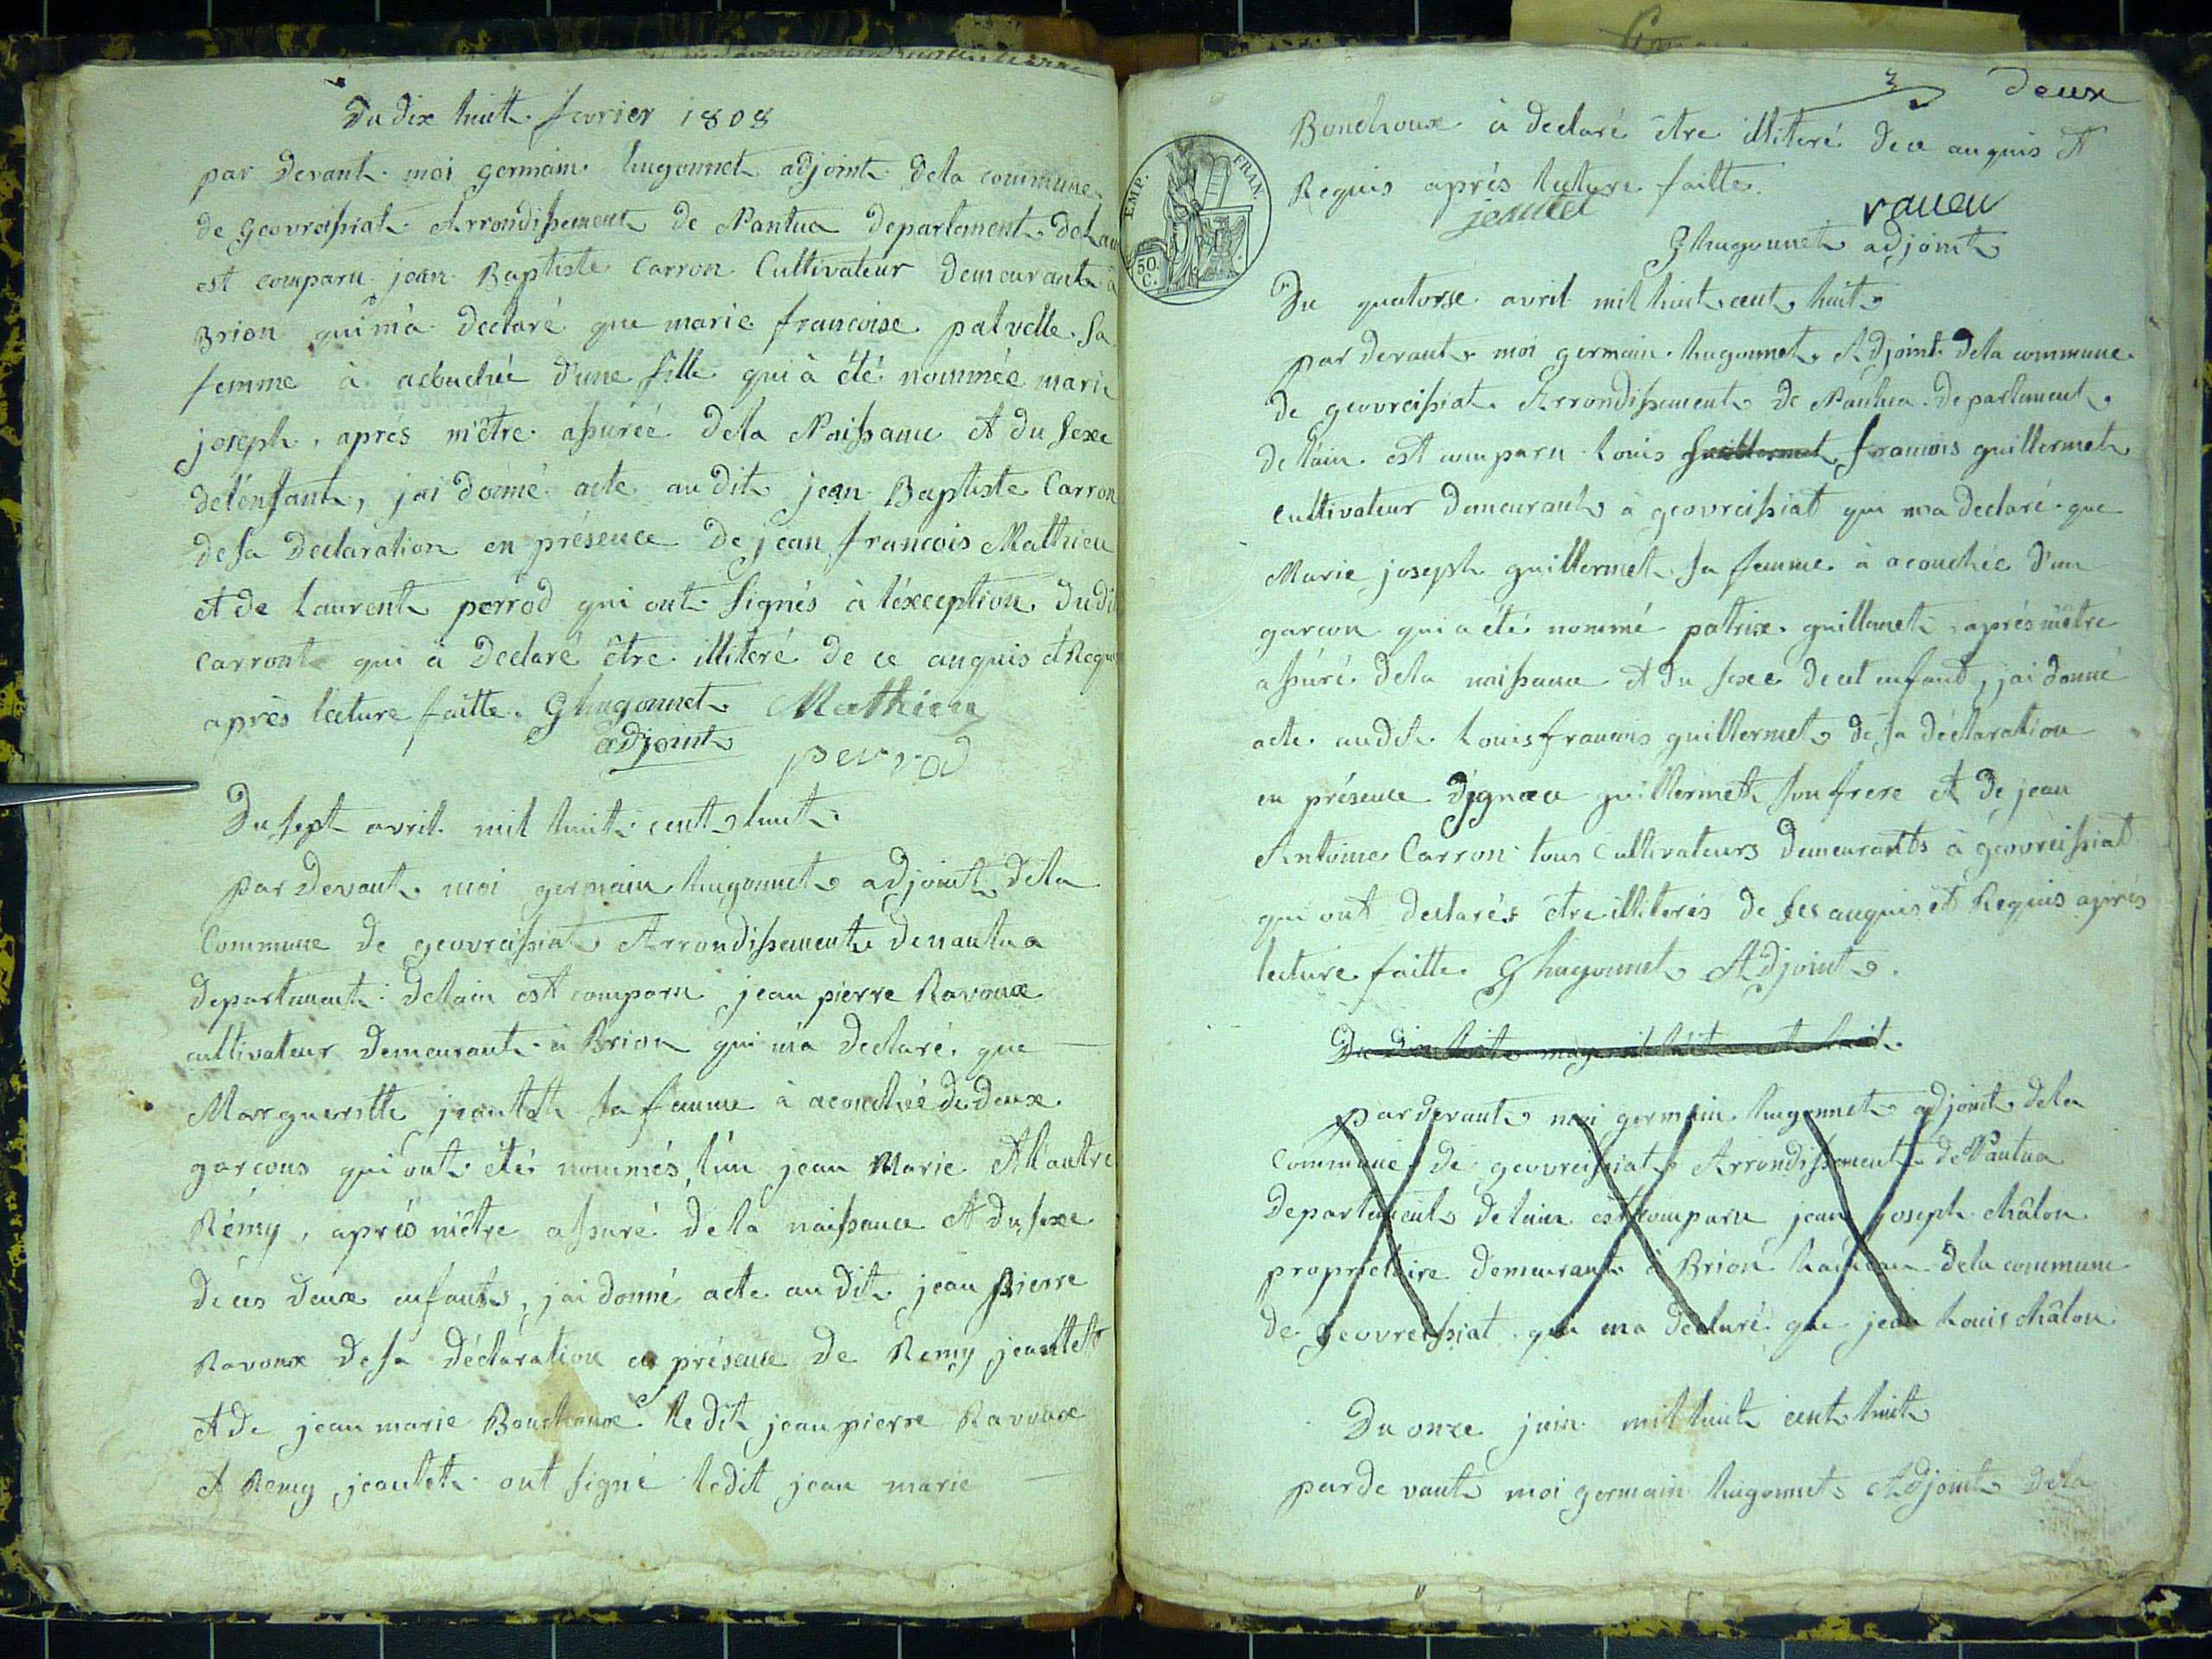 Du dix huit fevrier 1808
par devant moi germain hugonnet adjoint dela commune
de geovreissiat Arrondissement de Nantua departement delain
est comparu jean Baptiste Carron Cultivateur demeurant à
Brion qui m'a declaré que marie francoise palvelle sa
femme à acouchée d'une fille qui à été nommée marie
joseph, apres m'être assurée dela Naissance et du sexe
del'enfant, jai donné acte au dit jean Baptiste Carron
de sa declaration en présence de jean francois Mathieu
et de laurent perrod qui ont signés à l'exception dudit
Carront qui à declaré être illiteré de ce anquis et Requis
après lecture faitte. Ghugonnet Mathieu
adjoint perrod
Du sept avril mil huit cent huit
par devant moi germain hugonnet adjoint dela
Commune de geovreissiat Arrondissement denantua
departement delain est comparu jean pierre Ravoux
cultivateur demeurant à Brion qui m'a declaré que
Margueritte jeantet sa femme à acouchée de deux
garcons qui ont été nommés, l'un jean Marie et l'autre
Rémy, aprés m'être assuré dela naissance et du sexe
de ces deux enfants, jai donné acte au dit jean pierre
Ravoux de sa déclaration en présence de Remy jeantet
et de jean marie Bouchoux le dit jean pierre Ravoux
et Remy jeantet ont signé ledit jean marie
3 deux
Bouchoux à declaré être illiteré de ce anquis et
Requis aprés lecture faitte.
jeantet ravou
Ghugonnet adjoint
EMP. FRAN.
50. C.
Du quatorse avril mil huit cent huit
par devant moi germain hugonnet Adjoint dela commune
de geovreissiat Arrondissement de Nantua departement
de l'ain est comparu louis guillermet francois guillermet
cultivateur demeurant à geovreissiat qui ma declaré que
Marie joseph guillermet sa femme à acouchée d'un
garcon qui a été nommé patrix guillermet, aprés m'être
assuré dela naissance et du sexe de cet enfant, jai donné
acte audit louis francois guillermet de sa déclaration
en présence d'ignace guillermet son frere et de jean
Antoine Carron tous cultivateurs demeurants à geovreissiat
qui ont declarés être illiterés de ses anquis et Requis aprés
lecture faitte Ghugonnet Adjoint
Du dix huit may mil huit cent huit
par devant moi germain hugonnet adjoint dela
Commune de geovreissiat Arrondissement de Nantua
departement delain est comparu jean joseph châlon
proprietaire demeurant à Brion hameau dela commune
de geovreissiat qui ma declaré que jean louis châlon
Du onze juin mil huit cent huit
par de vant moi germain hugonnet Adjoint dela